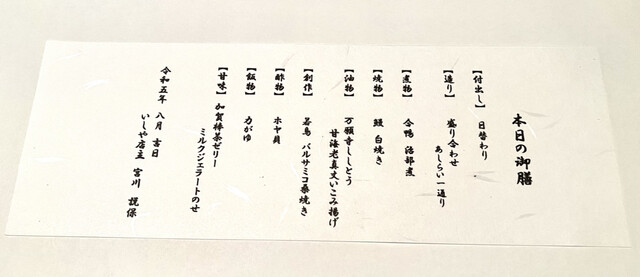 本日の御膳
【付出し】 日替わり
【造り】 盛り合わせ
あしらい一通り
【煮物】 合鴨 治部煮
【焼物】 鰻 白焼き
【油物】 万願寺ししとう
甘海老真丈いこみ揚げ
【創作】 若鳥 バルサミコ桑焼き
【酢物】 ホヤ貝
【飯物】 力がゆ
【甘味】 加賀棒茶ゼリー
ミルクジェラートのせ
令和五年 八月 吉日
いしや店主 宮川 説保